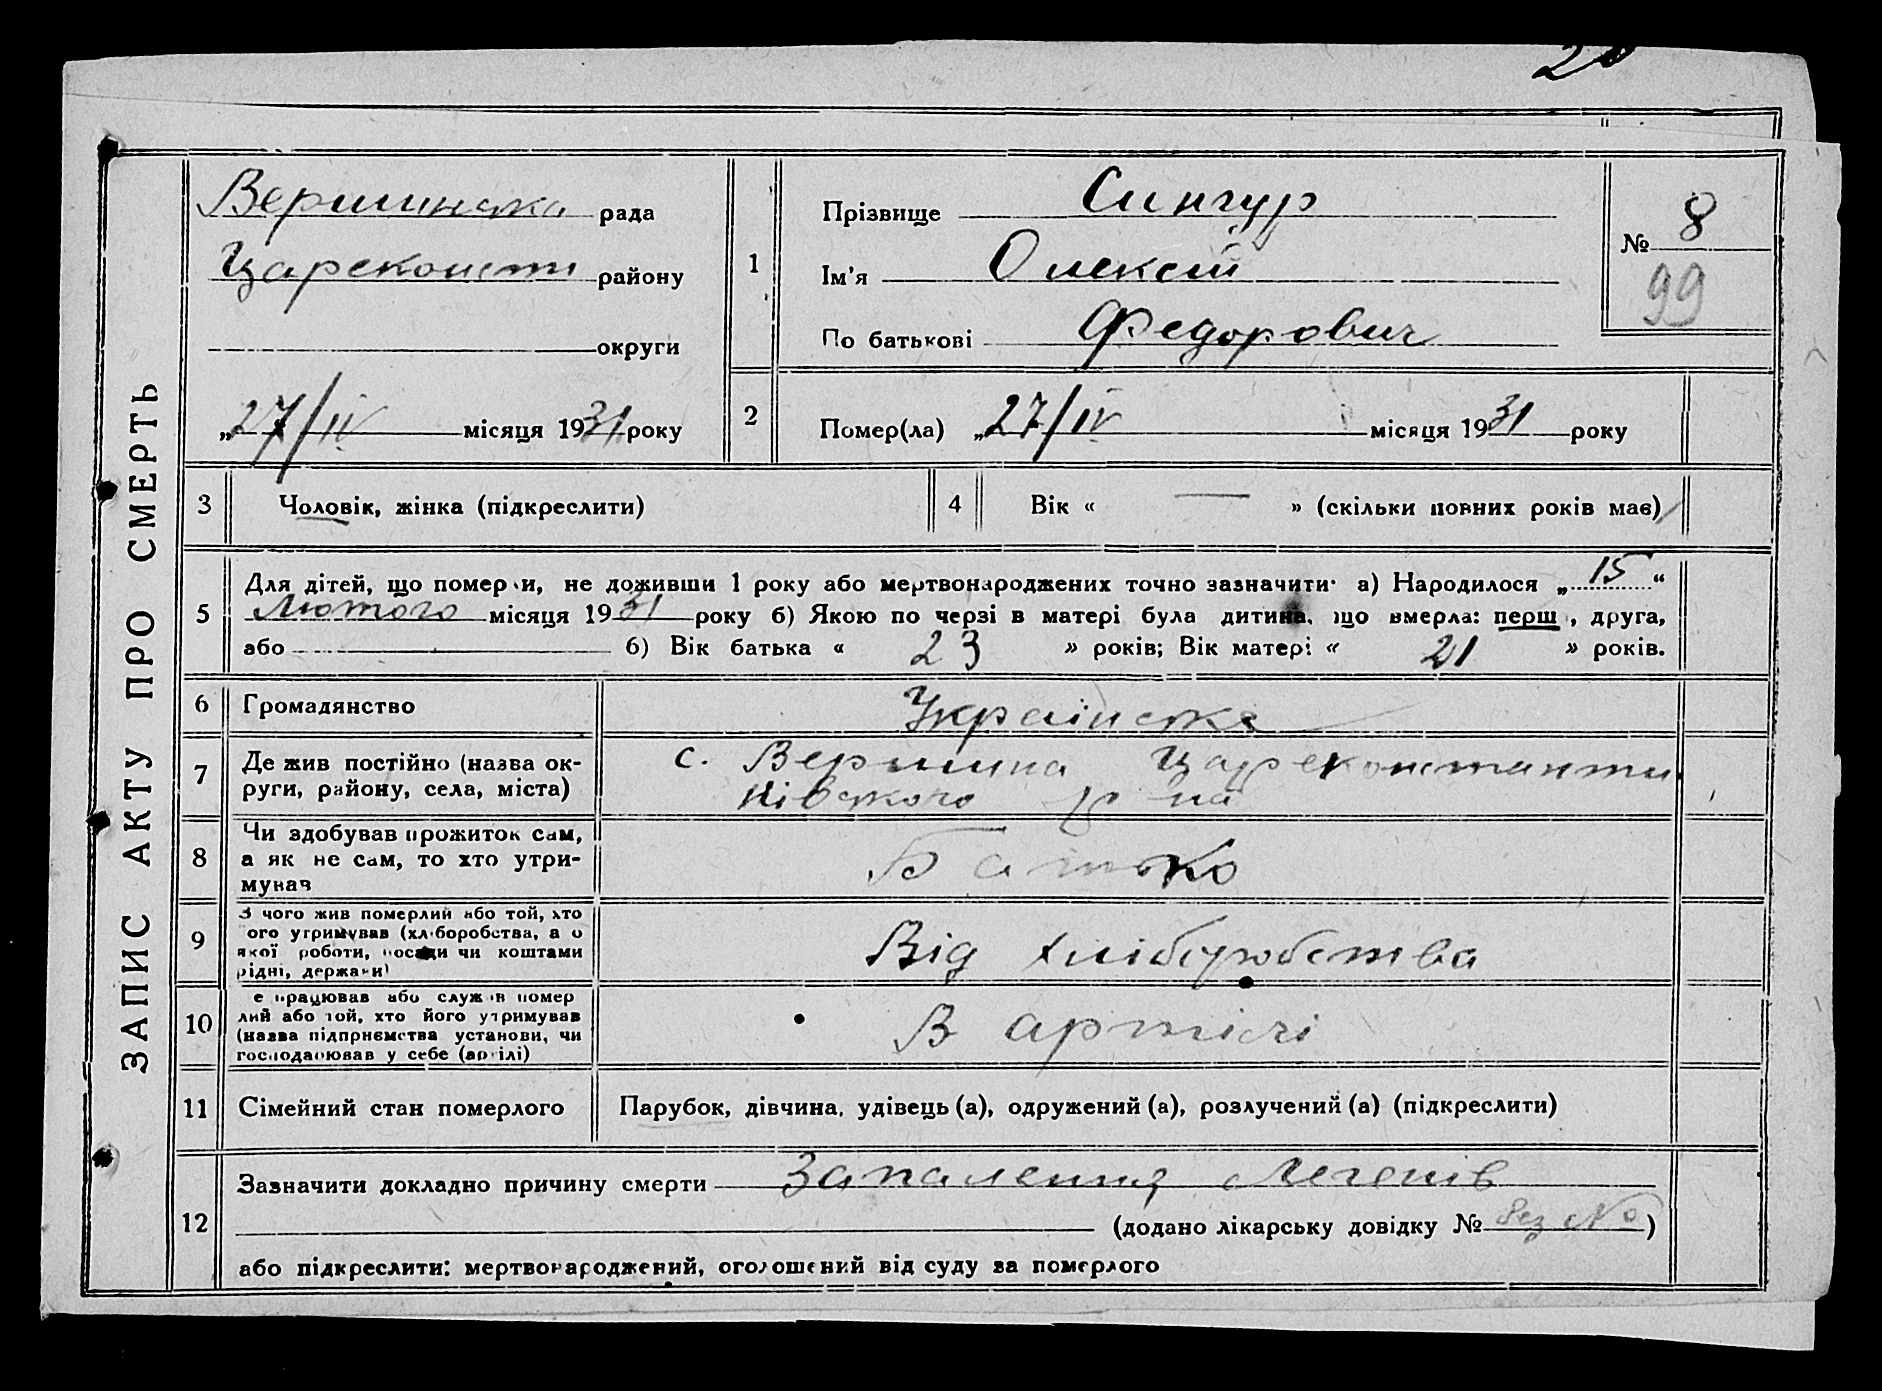 ЗАПИС АКТУ ПРО СМЕРТЬ
Вершинська рада
Цареконст районy
округи
„27/IV місяця 1931 року
1
Прізвище Сингур
Ім’я Олексій
По батькові Федорович
№ 8
99
2
Помер(ла) „27/IV місяця 1931 року
3 Чоловік, жінка (підкреслити)
4 Вік « — » (скільки повних років має)
5
Для дітей, що померли, не доживши 1 року або мертвонароджених точно зазначити: а) Народилося „15“
Лютого місяця 1931 року б) Якою по черзі в матері була дитина, що вмерла: перш , друга,
або 6) Вік батька « 23 » років; Вік матері « 21 » років.
6 Громадянство Українське
7 Де жив постійно (назва ок-
руги, району, села, міста)
с. Вершина Цареконстянти
нівського р-на
8 Чи здобував прожиток сам,
а як не сам, то хто утри-
мував
Батько
9 З чого жив померлий або той, хто
ого утримував (хліборобства, а о
якої роботи, посади чи коштами
рідні, держави)
Від хліборобства
10 е працював або служив помер
лий або той, хто його утримував
(назва підприємства установи, чи
господарював у себе (артілі)
В артілі
11 Сімейний стан померлого
Парубок, дівчина, удівець (а), одружений (а), розлучений (а) (підкреслити)
12
Зазначити докладно причину смерти Запалення Легенів
(додано лікарську довідку № без №)
або підкреслити: мертвонароджений, оголошений від суду за померлого